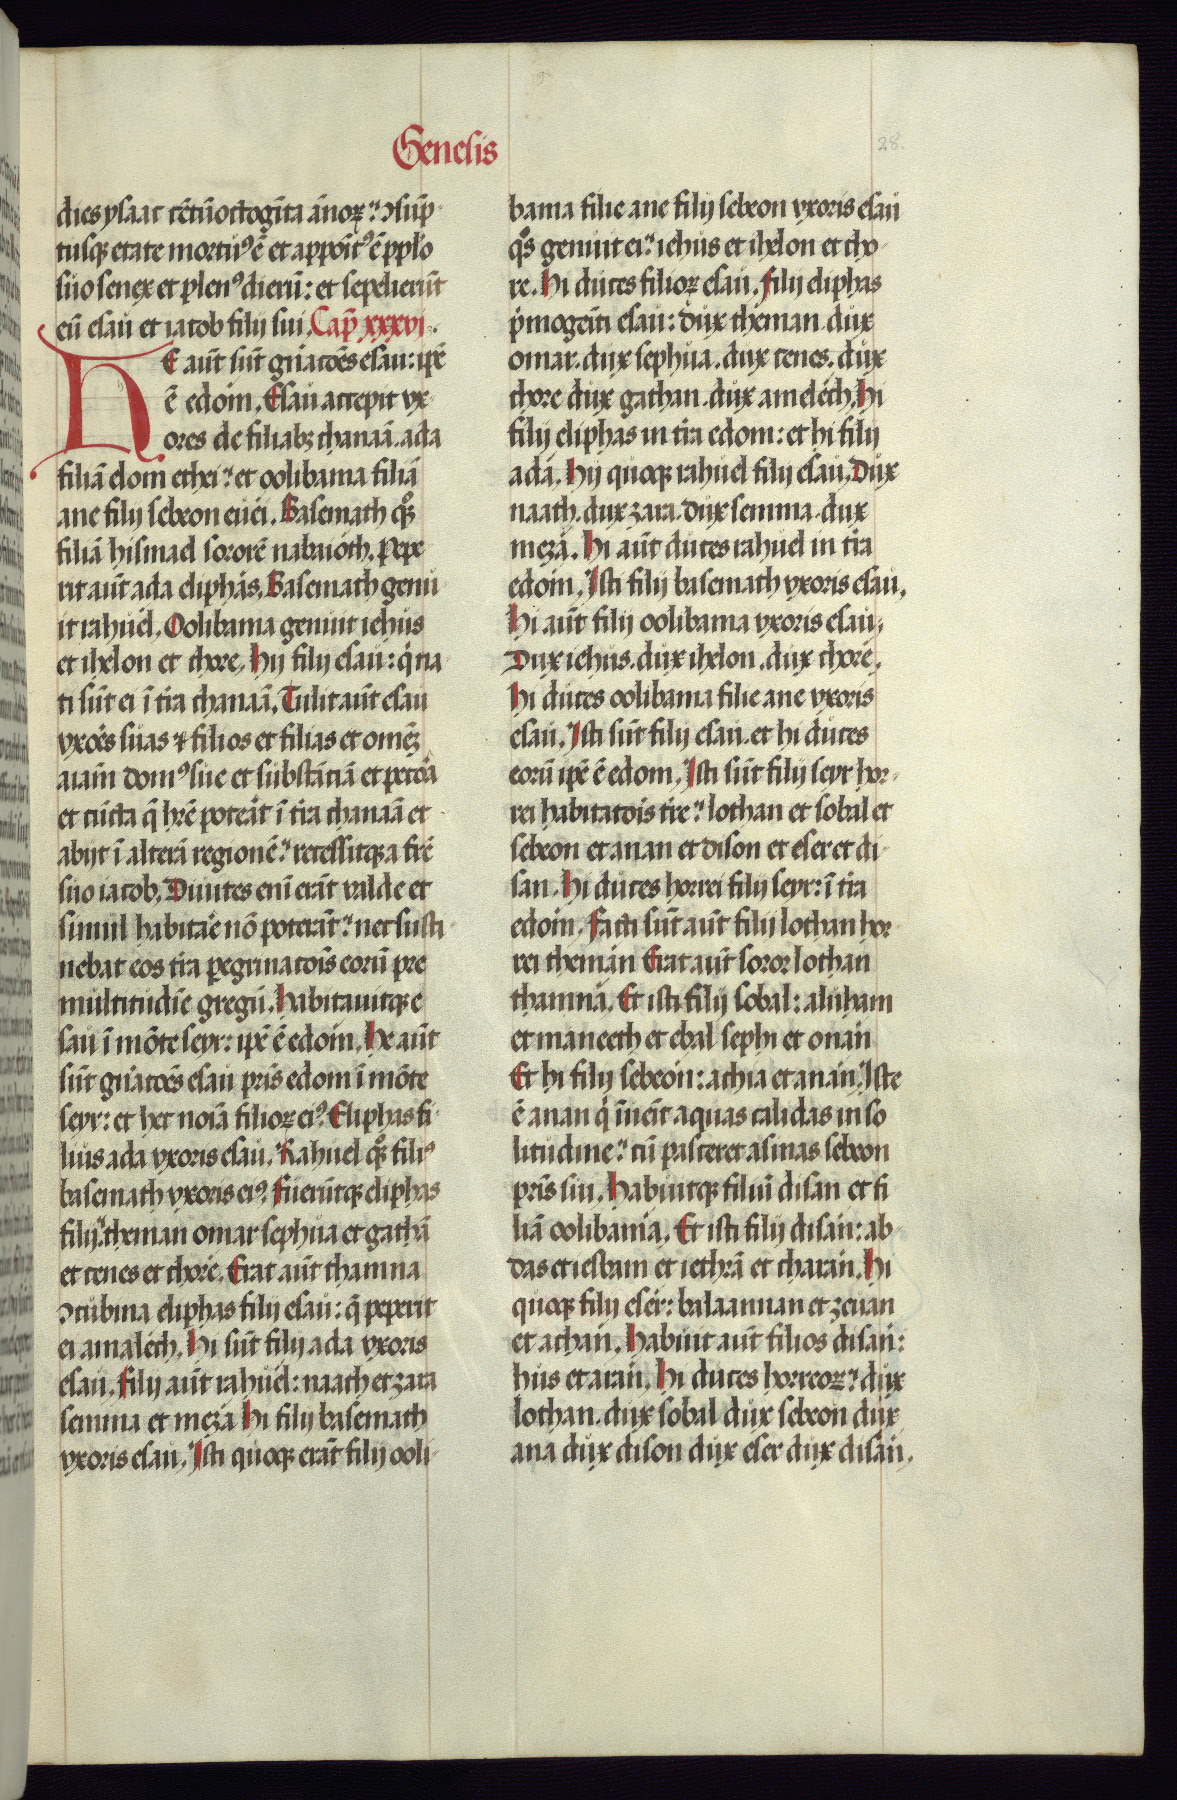 Genesis
28.
dies ysaac cētū octogīta ānoꝝ: ꝯsūp
tusqꝫ etate mortuꝰ ē et appoītꝰ ē pplo
suo senex et plenꝰ dierū: et sepelierūt
eū esau et iacob filij sui. Cap̄ xxxvj.
HE aūt sūt gn̄atōes esau: ip̄e
ē edom. Esau accepit vx-
ores de filiabꝫ chanaā. ada
filiā elom ethei: et oolibama filiā
ane filij sebeon euei. Basemath qꝫ
filiā hismael sororē nabaioth. Pepe
rit aūt ada eliphas. Basemath genu
it rahuel. Oolibama genuit iehus
et ihelon et chore. Hij filij esau: q̇ na
ti sūt ei ī tr̄a chanaā. Tulit aūt esau
vxōes suas ⁊ filios et filias et omēꝫ
aīam domꝰ sue et substātiā et pecōa
et cūcta q̄ hr̄e poterāt ī tr̄a chanaā et
abijt ī alterā regionē: recessitqꝫ a fr̄e
suo iacob. Diuites enī erāt valde et
simul habitāe nō poterāt: nec susti-
nebat eos tr̄a pegrinatōis eorū pre
multitudīe gregū. Habitauitqꝫ e
sau ī mōte seyr: ip̄e ē edom. He aūt
sūt gn̄atōes esau pr̄is edom ī mōte
seyr: et hec noīa filioꝝ eiꝰ. Eliphas fi-
lius ada vxoris esau. Rahuel qꝫ filiꝰ
basemath vxoris eiꝰ. Fuerūtqꝫ eliphas
filij: theman omar sephua et gathā
et cenes et chore. Erat aūt thamna
ꝯcubina eliphas filij esau: q̄ peperit
ei amalech. Hi sūt filij ada vxoris
esau. Filij aūt rahuel: naath et zara
semma et meza Hi filij basemath
vxoris esau. Isti quoqꝫ erāt filij ooli-
bama filie ane filij sebeon vxoris esau
qͦs genuit ei: iehus et ihelon et cho-
re. Hi duces filioꝝ esau. Filij eliphas
p̍mogeīti esau: dux theman dux
omar. dux sephua. dux cenes. dux
chore dux gathan. dux amelech. Hi
filij eliphas in tr̄a edom: et hi filij
ada. Hij quoqꝫ rahuel filij esau. Dux
naath. dux zara. dux semma. dux
meza. Hi aūt duces rahuel in tr̄a
edom. Isti filij basemath vxoris esau.
Hi aūt filij oolibama vxoris esau:
Dux iehus. dux ihelon. dux chore.
Hi duces oolibama filie ane vxoris
esau. Isti sūt filij esau. et hi duces
eorū ip̄e ē edom. Isti sūt filij seyr hor-
rei habitatois tr̄e: lothan et sobal et
sebeon et anan et dison et eser et di-
san. Hi duces horrei filij seyr: ī tr̄a
edom. Facti sūt aūt filij lothan hor-
rei theman Erat aūt soror lothan
thamna. Et isti filij sobal: aluham
et maneeth et ebal sephi et onan
Et hi filij sebeon: achia et anan. Iste
ē anan q̇ īueīt aquas calidas in so
litudine: cū pasceret asinas sebeon
pr̄is sui. Habuitqꝫ filiū disan et fi
liā oolibama. Et isti filij disan: ab-
das et iesbam et iethrā et charan. Hi
quoqꝫ filij eser: balaannan et zeuan
et achan. Habuit aūt filios disan:
hus et aran. Hi duces horreoꝝ: dux
lothan. dux sobal dux sebeon dux
ana dux dison dux eser dux disan.